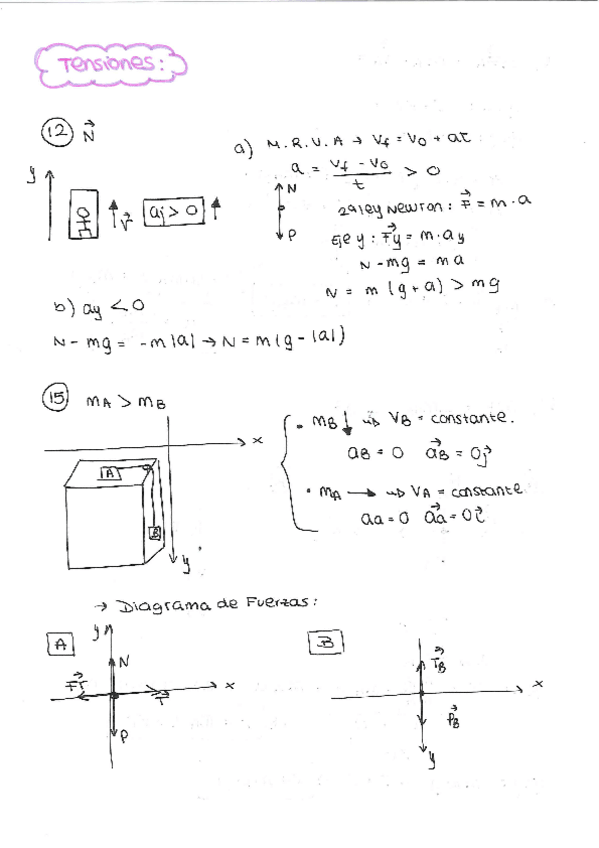 Tensiones:
12 N⃗
a) M.R.V.A → Vf = V0 + at
a = (Vf - V0)/t > 0
y
V⃗
aj > 0
N
P
2ª ley Newton: F⃗ = m·a
Eje y: F⃗y = m·ay
N - mg = ma
N = m(g+a) > mg
b) ay < 0
N - mg = -m|a| → N = m(g - |a|)
15 mA > mB
x
A
B
y
• mB ↓ → VB = constante.
aB = 0 a⃗B = 0j⃗
• mA → → VA = constante
aa = 0 a⃗a = 0i⃗
→ Diagrama de Fuerzas:
A
y
N
T⃗
x
P
B
T⃗B
x
P⃗B
y